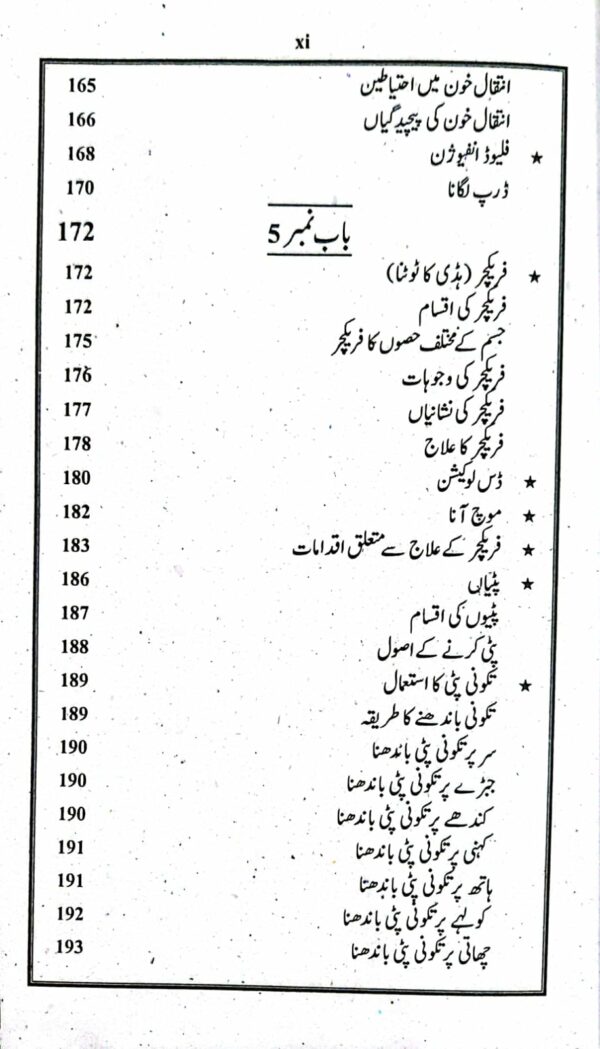 xi
انتقال خون میں احتیاطین 165
انتقال خون کی پیچیدگیاں 166
★ فلیوڈ انفیوژن 168
ڈرپ لگانا 170
باب نمبر 5 172
★ فریکچر (ہڈی کا ٹوٹنا) 172
فریکچر کی اقسام 172
جسم کے مختلف حصوں کا فریکچر 175
فریکچر کی وجوہات 176
فریکچر کی نشانیاں 177
فریکچر کا علاج 178
★ ڈس لوکیشن 180
★ موچ آنا 182
★ فریکچر کے علاج سے متعلق اقدامات 183
★ پٹیاں 186
پٹیوں کی اقسام 187
پٹی کرنے کے اصول 188
★ تکونی پٹی کا استعمال 189
تکونی باندھنے کا طریقہ 189
سر پر تکونی پٹی باندھنا 190
جبڑے پر تکونی پٹی باندھنا 190
کندھے پر تکونی پٹی باندھنا 190
کہنی پر تکونی پٹی باندھنا 191
ہاتھ پر تکونی پٹی باندھنا 191
کولہے پر تکونی پٹی باندھنا 192
چھاتی پر تکونی پٹی باندھنا 193